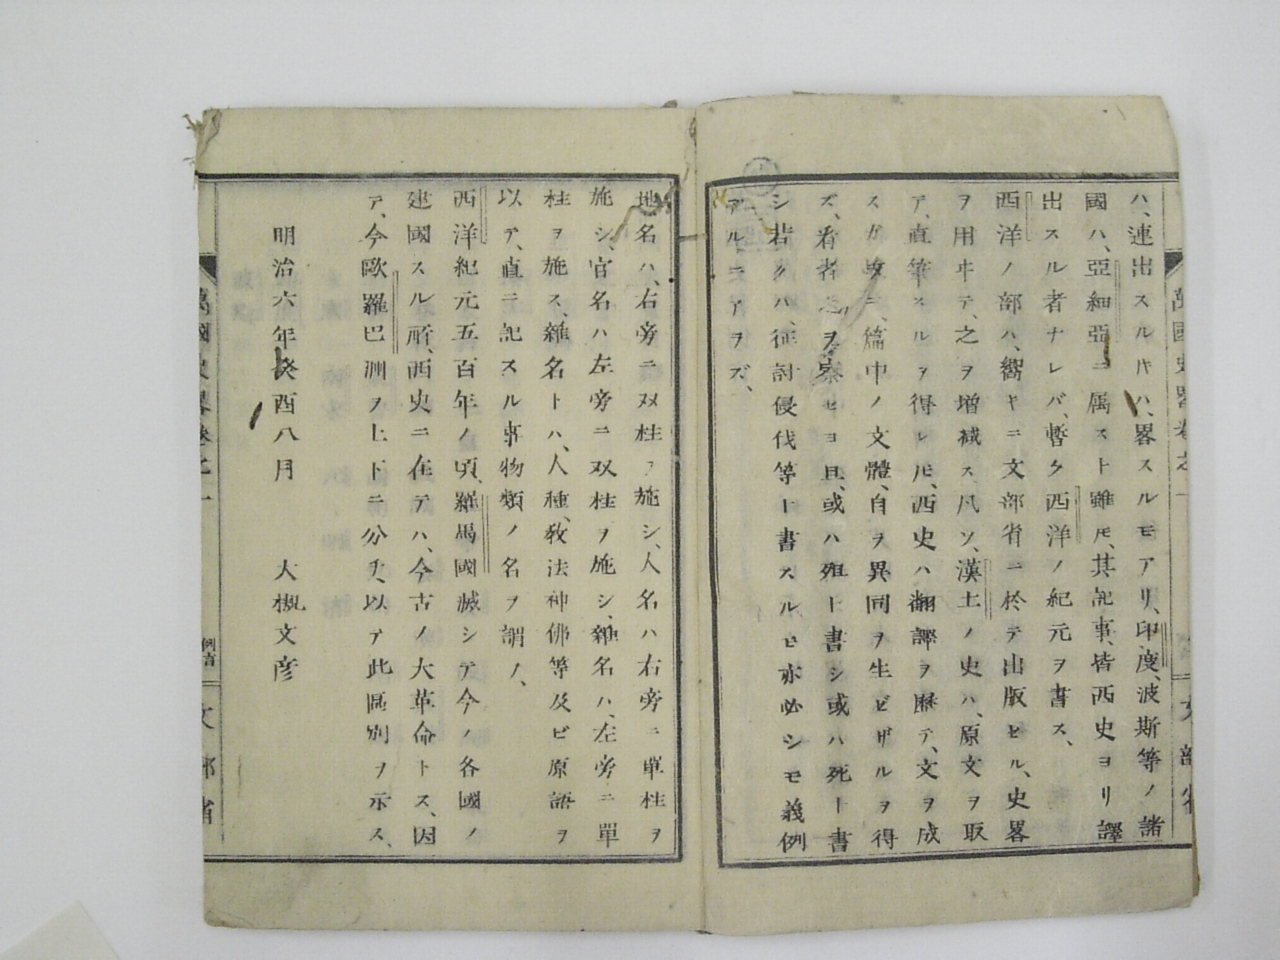 ハ、連出スルキハ、畧スルモアリ、印度、波斯等ノ諸
國ハ、亞細亞ニ属スト雖𪜈、其記事、皆西史ヨリ譯
出スル者ナレバ、暫ク西洋ノ紀元ヲ書ス、
西洋ノ部ハ、嚮キニ文部省ニ於テ出版セル、史畧
ヲ用ヰテ、之ヲ増減ス、凡ソ、漢土ノ史ハ、原文ヲ取
テ、直筆スルヲ得レ𪜈、西史ハ翻譯ヲ歴テ、文ヲ成
スガ故ニ、篇中ノ文體、自ヲ異同ヲ生ゼザルヲ得
ズ、看者之ヲ察セヨ且、或ハ殂ト書シ或ハ死ト書
シ若クハ、征討侵伐等ト書スルモ亦必シモ義例
アルニアラズ、
萬國史畧卷之一
文部省
地名ハ、右旁ニ双柱ヲ施シ、人名ハ右旁ニ単柱ヲ
施シ、官名ハ左旁ニ双柱ヲ施シ、雜名ハ、左旁ニ單
柱ヲ施ス、雜名トハ、人種、敎法神佛等及ビ原語ヲ
以テ、直ニ記スル事物類ノ名ヲ謂フ、
西洋紀元五百年ノ頃、羅馬國滅シテ今ノ各國ノ
建國スル所、西史ニ在テハ、今古ノ大革命トス、因
テ、今歐羅巴洲ヲ上下ニ分チ、以テ此區別ヲ示ス、
明治六年癸酉八月　大槻文彦
萬國史畧卷之一
例言
文部省